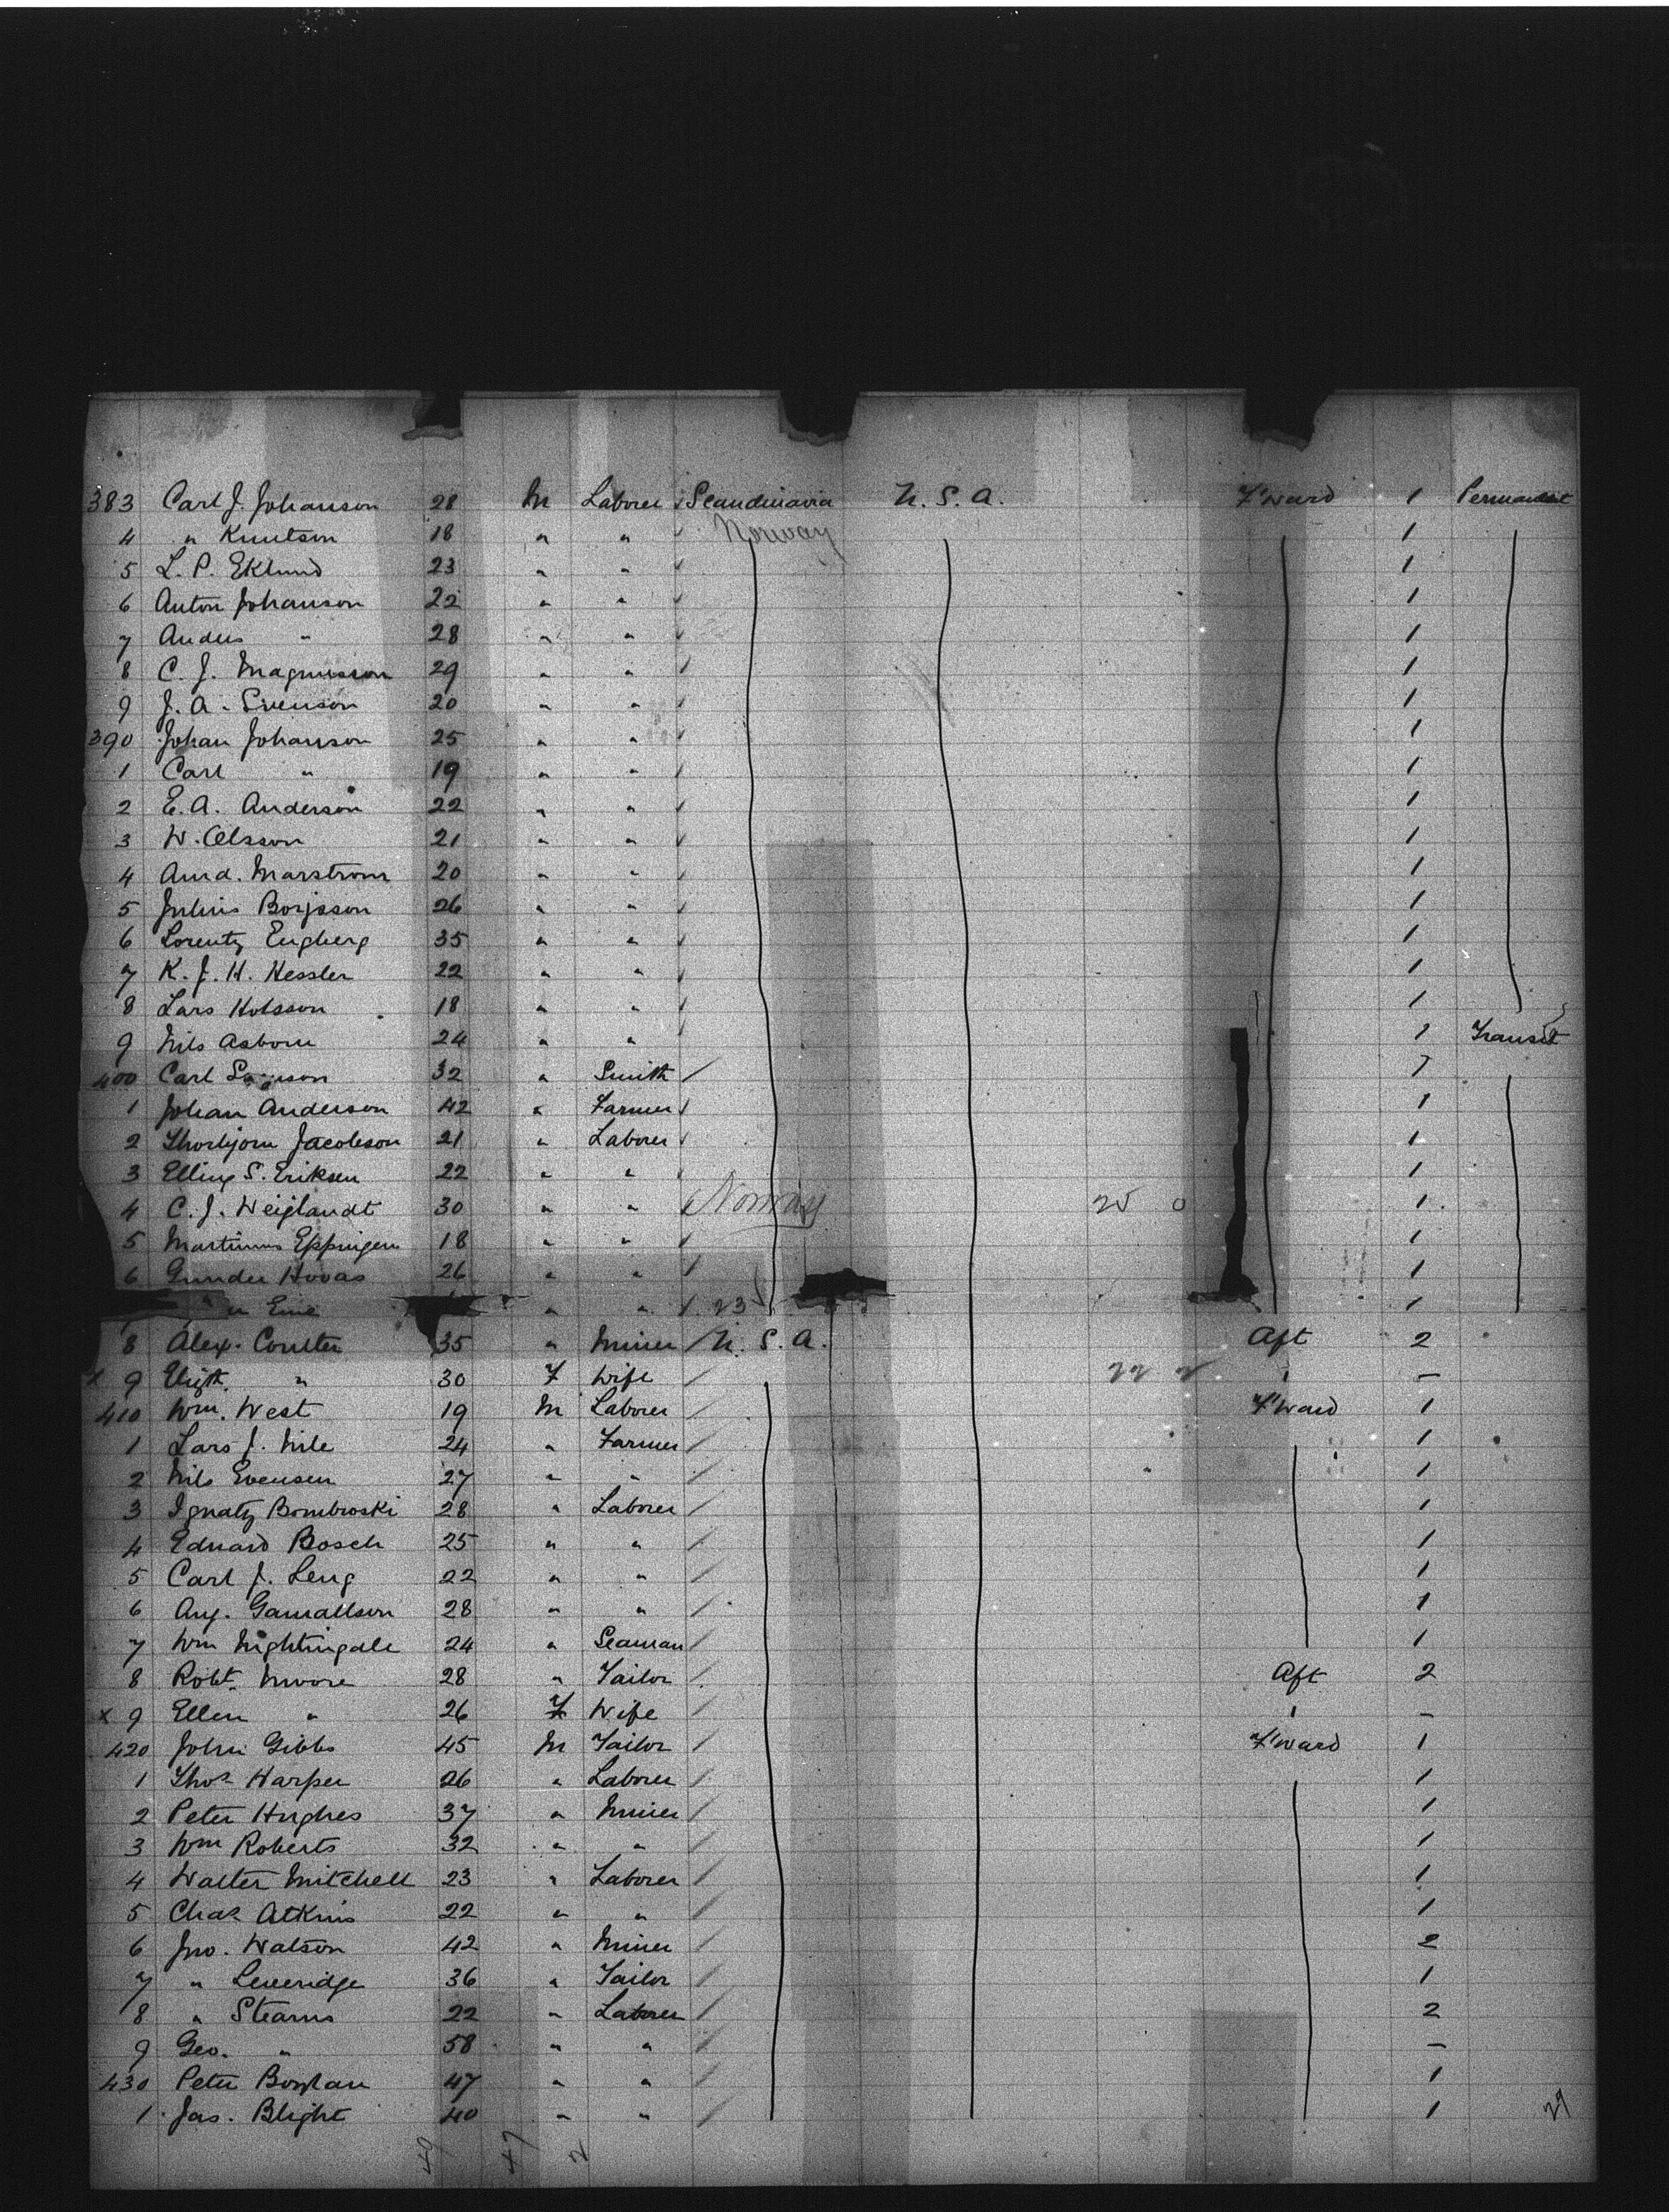 383 Carl J. Johanson 28 M Laborer Scandinavia U. S. A. F'ward 1 Permanent
4 " Knutson 18 " " Norway 1
5 L. P. Eklund 23 " " 1
6 Anton Johanson 22 " " 1
7 Anders " 28 " " 1
8 C. J. Magnusson 29 " " 1
9 J. A. Svenson 20 " " 1
390 Johan Johanson 25 " " 1
1 Carl " 19 " " 1
2 E. A. Anderson 22 " " 1
3 W. Olsson 21 " " 1
4 Marstrom 20 " " 1
5 Julius Borjsson 26 " " 1
6 Lorentz Engberg 35 " " 1
7 K. J. H. Hessler 22 " " 1
8 Lars 18 " " 1
9 Nils Asborn 24 " " 1 Transit
400 Carl 32 " Smith 1
1 Johan Anderson 42 " Farmer 1
2 Thorbjorn Jacobson 21 " Laborer 1
3 Elling S. Eriksen 22 " " 1
4 C. J. Weiglandt 30 " " Norway 25 0 1
5 Martinus Eppingen 18 " " 1
6 Gunder Hovas 26 " " 1
" " 23 1
8 Alex. Coulter 35 " Miner U. S. A. Aft 2
x 9 Elizth " 30 F Wife 22 2 " -
410 Wm. West 19 M Laborer F'ward 1
1 Lars J. Nile 24 " Farmer 1
2 Nils Evensen 27 " " 1
3 Ignatz Bombroski 28 " Laborer 1
4 Eduard Bosch 25 " " 1
5 Carl J. Leng 22 " " 1
6 Aug. Gamallson 28 " " 1
7 Wm Nightingale 24 " Seaman 1
8 Robt. Moore 28 " Tailor Aft 2
x 9 Ellen " 26 F Wife " -
420 John Gibbs 45 M Tailor F'ward 1
1 Thos Harper 26 " Laborer 1
2 Peter Hughes 37 " Miner 1
3 Wm Roberts 32 " " 1
4 Walter Mitchell 23 " Laborer 1
5 Chas Atkins 22 " " 1
6 Jno. Watson 42 " Miner 2
7 " Leveridge 36 " Tailor 1
8 " Stearns 22 " Laborer 2
9 Geo. " 58 " " -
430 Peter Boylan 47 " " 1
1 Jas. Blight 40 " " 1
49 47 2 29